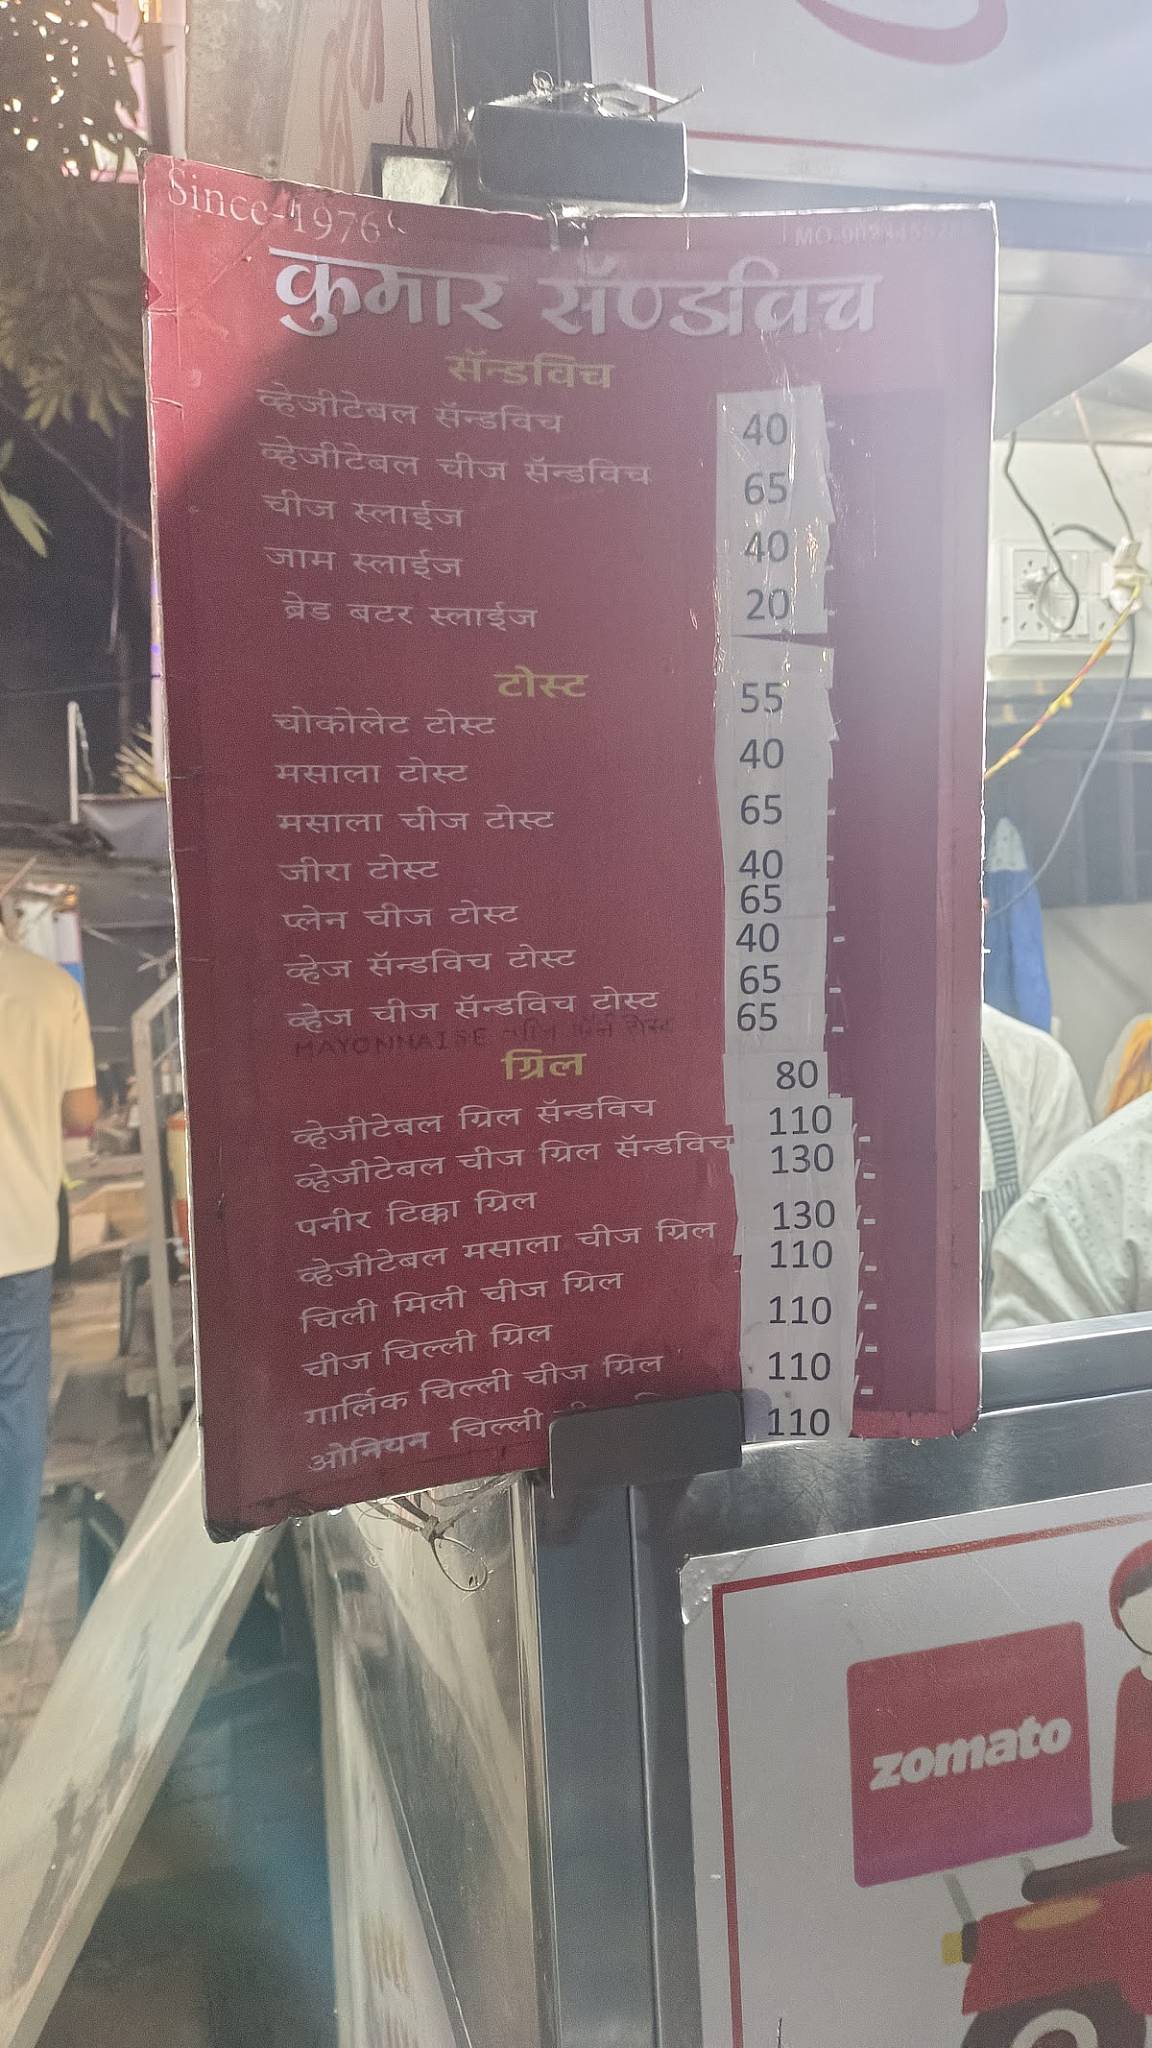 Since-1976
कुमार सॅण्डविच
सॅन्डविच
व्हेजीटेबल सॅन्डविच 40
व्हेजीटेबल चीज सॅन्डविच 65
चीज स्लाईज 40
जाम स्लाईज 20
ब्रेड बटर स्लाईज
टोस्ट 55
चोकोलेट टोस्ट 40
मसाला टोस्ट
मसाला चीज टोस्ट 65
जीरा टोस्ट 40
प्लेन चीज टोस्ट 65
40
व्हेज सॅन्डविच टोस्ट 65
व्हेज चीज सॅन्डविच टोस्ट 65
MAYONNAISE
ग्रिल 80
व्हेजीटेबल ग्रिल सॅन्डविच 110
व्हेजीटेबल चीज ग्रिल सॅन्डविच 130
पनीर टिक्का ग्रिल 130
व्हेजीटेबल मसाला चीज ग्रिल 110
चिली मिली चीज ग्रिल 110
चीज चिल्ली ग्रिल 110
गार्लिक चिल्ली चीज ग्रिल 110
ओनियन चिल्ली
zomato